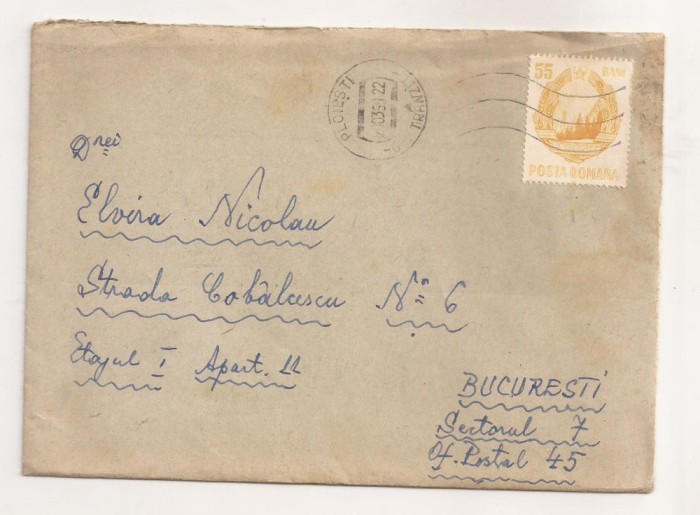 PLOIEȘTI
TRANZIT
55 BANI
POSTA ROMANA
Drei
Elvira Nicolau
Strada Cobâlcescu No 6
Etajul I Apart. 11
BUCURESTI
Sectorul 7
Of. Postal 45